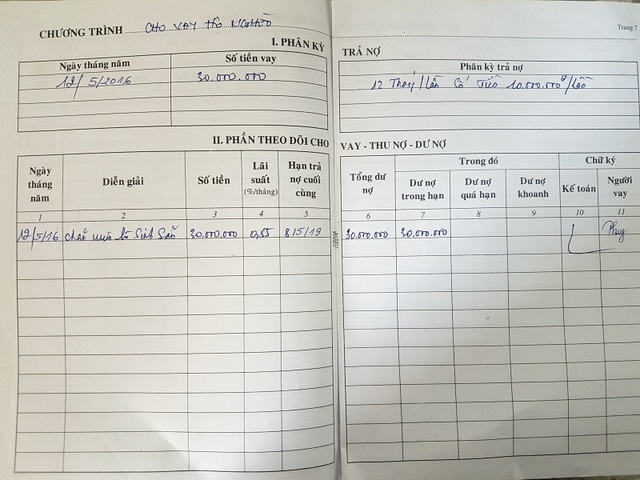 CHƯƠNG TRÌNH CHO VAY Hộ NGHÈO
I. PHÂN KỲ
Ngày tháng năm Số tiền vay
12/5/2016 30.000.000
II. PHẦN THEO DÕI CHO
Ngày tháng năm Diễn giải Số tiền Lãi suất (%/tháng) Hạn trả nợ cuối cùng
1 2 3 4 5
12/5/16 chăn nuôi bò Sinh Sản 30.000.000 0,55 8/5/19
Trang 7
TRẢ NỢ
Phân kỳ trả nợ
12 Tháng/lần Số Tiền 10.000.000đ/lần
VAY - THU NỢ - DƯ NỢ
Tổng dư nợ Trong đó Chữ ký
Dư nợ trong hạn Dư nợ quá hạn Dư nợ khoanh Kế toán Người vay
6 7 8 9 10 11
30.000.000 30.000.000